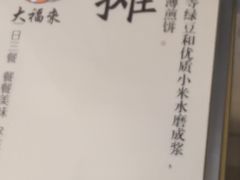 大福来
摊
等绿豆和优质小米水磨成浆，
薄煎饼
日三餐 餐餐美味